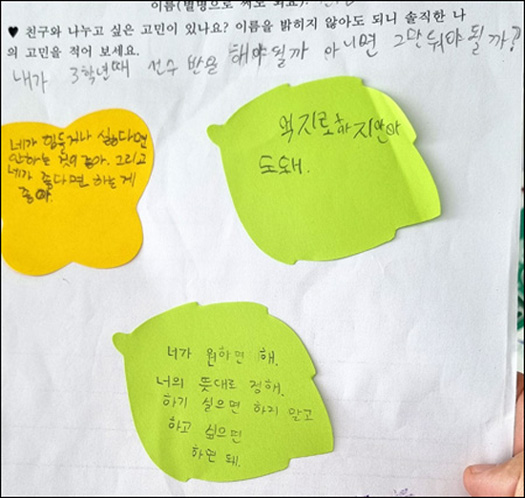 이름(별명으로 써도 되요):
♥ 친구와 나누고 싶은 고민이 있나요? 이름을 밝히지 않아도 되니 솔직한 나
의 고민을 적어 보세요.
내가 3학년때 선수 반을 해야될까 아니면 그만둬야 될까?
네가 힘들거나 싫다면
안하는 것이 좋아. 그리고
네가 좋다면 하는게
좋아.
억지로하지안아
도돼.
너가 원하면 해.
너의 뜻대로 정해.
하기 실으면 하지 말고
하고 십으면
하면 돼.